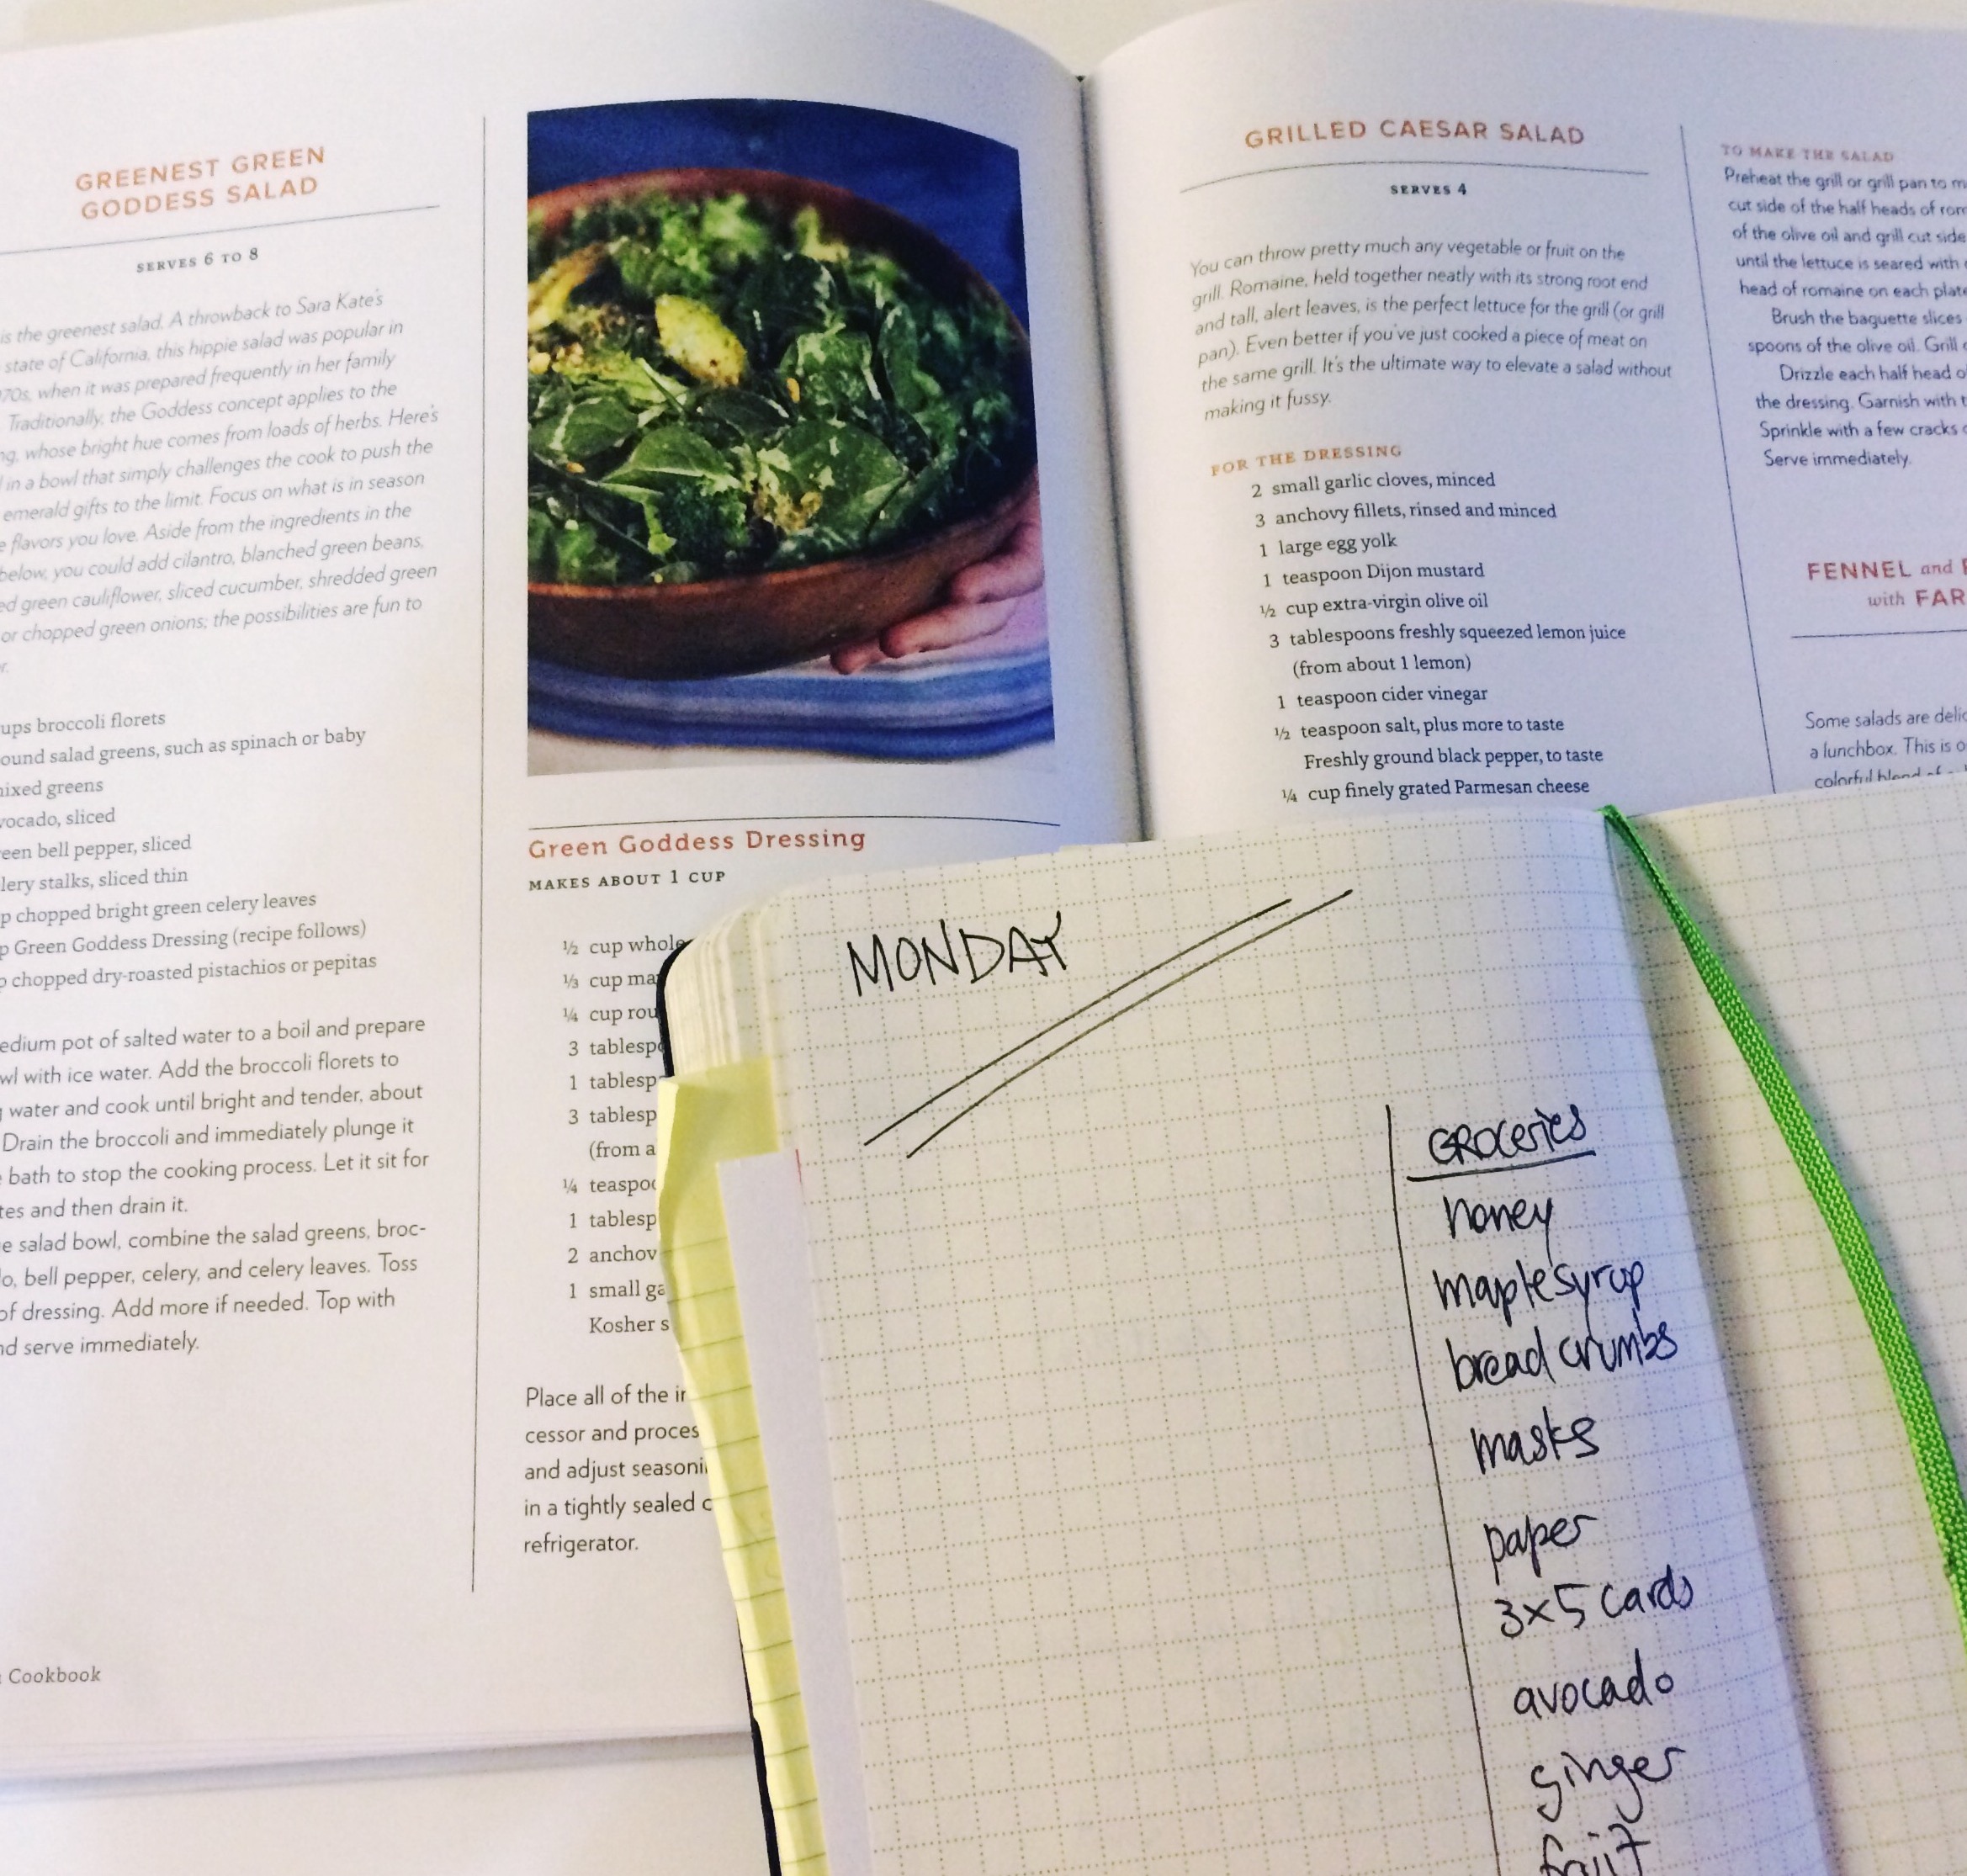 GREENEST GREEN
GODDESS SALAD
SERVES 6 TO 8
is the greenest salad. A throwback to Sara Kate's
state of California, this hippie salad was popular in
70s, when it was prepared frequently in her family
Traditionally, the Goddess concept applies to the
ng, whose bright hue comes from loads of herbs. Here's
in a bowl that simply challenges the cook to push the
emerald gifts to the limit. Focus on what is in season
e flavors you love. Aside from the ingredients in the
below, you could add cilantro, blanched green beans,
ed green cauliflower, sliced cucumber, shredded green
or chopped green onions; the possibilities are fun to
r.
ups broccoli florets
ound salad greens, such as spinach or baby
mixed greens
vocado, sliced
een bell pepper, sliced
lery stalks, sliced thin
p chopped bright green celery leaves
p Green Goddess Dressing (recipe follows)
p chopped dry-roasted pistachios or pepitas
edium pot of salted water to a boil and prepare
wl with ice water. Add the broccoli florets to
g water and cook until bright and tender, about
Drain the broccoli and immediately plunge it
e bath to stop the cooking process. Let it sit for
tes and then drain it.
e salad bowl, combine the salad greens, broc-
do, bell pepper, celery, and celery leaves. Toss
of dressing. Add more if needed. Top with
nd serve immediately.
Cookbook
Green Goddess Dressing
MAKES ABOUT 1 CUP
½ cup whole
⅓ cup ma
¼ cup rou
3 tablespo
1 tablesp
3 tablesp
(from a
¼ teaspoo
1 tablesp
2 anchov
1 small ga
Kosher s
Place all of the in
cessor and proces
and adjust seasoni
in a tightly sealed c
refrigerator.
GRILLED CAESAR SALAD
SERVES 4
You can throw pretty much any vegetable or fruit on the
grill. Romaine, held together neatly with its strong root end
and tall, alert leaves, is the perfect lettuce for the grill (or grill
pan). Even better if you've just cooked a piece of meat on
the same grill. It's the ultimate way to elevate a salad without
making it fussy.
FOR THE DRESSING
2 small garlic cloves, minced
3 anchovy fillets, rinsed and minced
1 large egg yolk
1 teaspoon Dijon mustard
½ cup extra-virgin olive oil
3 tablespoons freshly squeezed lemon juice
(from about 1 lemon)
1 teaspoon cider vinegar
½ teaspoon salt, plus more to taste
Freshly ground black pepper, to taste
¼ cup finely grated Parmesan cheese
TO MAKE THE SALAD
Preheat the grill or grill pan to m
cut side of the half heads of rom
of the olive oil and grill cut side
until the lettuce is seared with
head of romaine on each plate
Brush the baguette slices
spoons of the olive oil. Grill
Drizzle each half head o
the dressing. Garnish with t
Sprinkle with a few cracks
Serve immediately.
FENNEL and
with FAR
Some salads are delic
a lunchbox. This is o
colorful blend of
MONDAY
GROCERIES
honey
maple syrup
bread crumbs
masks
paper
3x5 cards
avocado
ginger
fruit